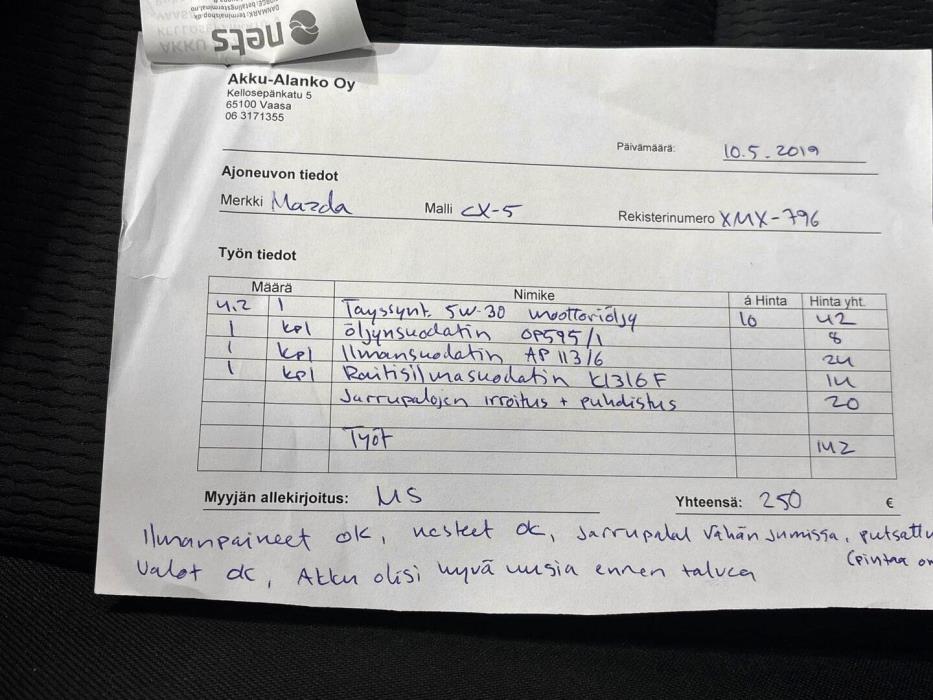 nets
DANMARK: terminalshop.dk
AKKU
Akku-Alanko Oy
Kellosepänkatu 5
65100 Vaasa
06 3171355
Päivämäärä: 10.5.2019
Ajoneuvon tiedot
Merkki Mazda Malli CX-5 Rekisterinumero XMX-796
Työn tiedot
Määrä Nimike á Hinta Hinta yht.
4.2 l Täyssynt. 5W-30 moottoriöljy 10 42
1 kpl öljynsuodatin OP595/1 8
1 kpl Ilmansuodatin AP 113/6 24
1 kpl Raitisilmasuodatin K1316F 14
Jarrupalojen irroitus + puhdistus 20
Työt 142
Myyjän allekirjoitus: MS Yhteensä: 250 €
Ilmanpaineet ok, nesteet ok, Jarrupalat vähän jumissa, putsattu
(pintaa on
Valot ok, Akku olisi hyvä uusia ennen talvea